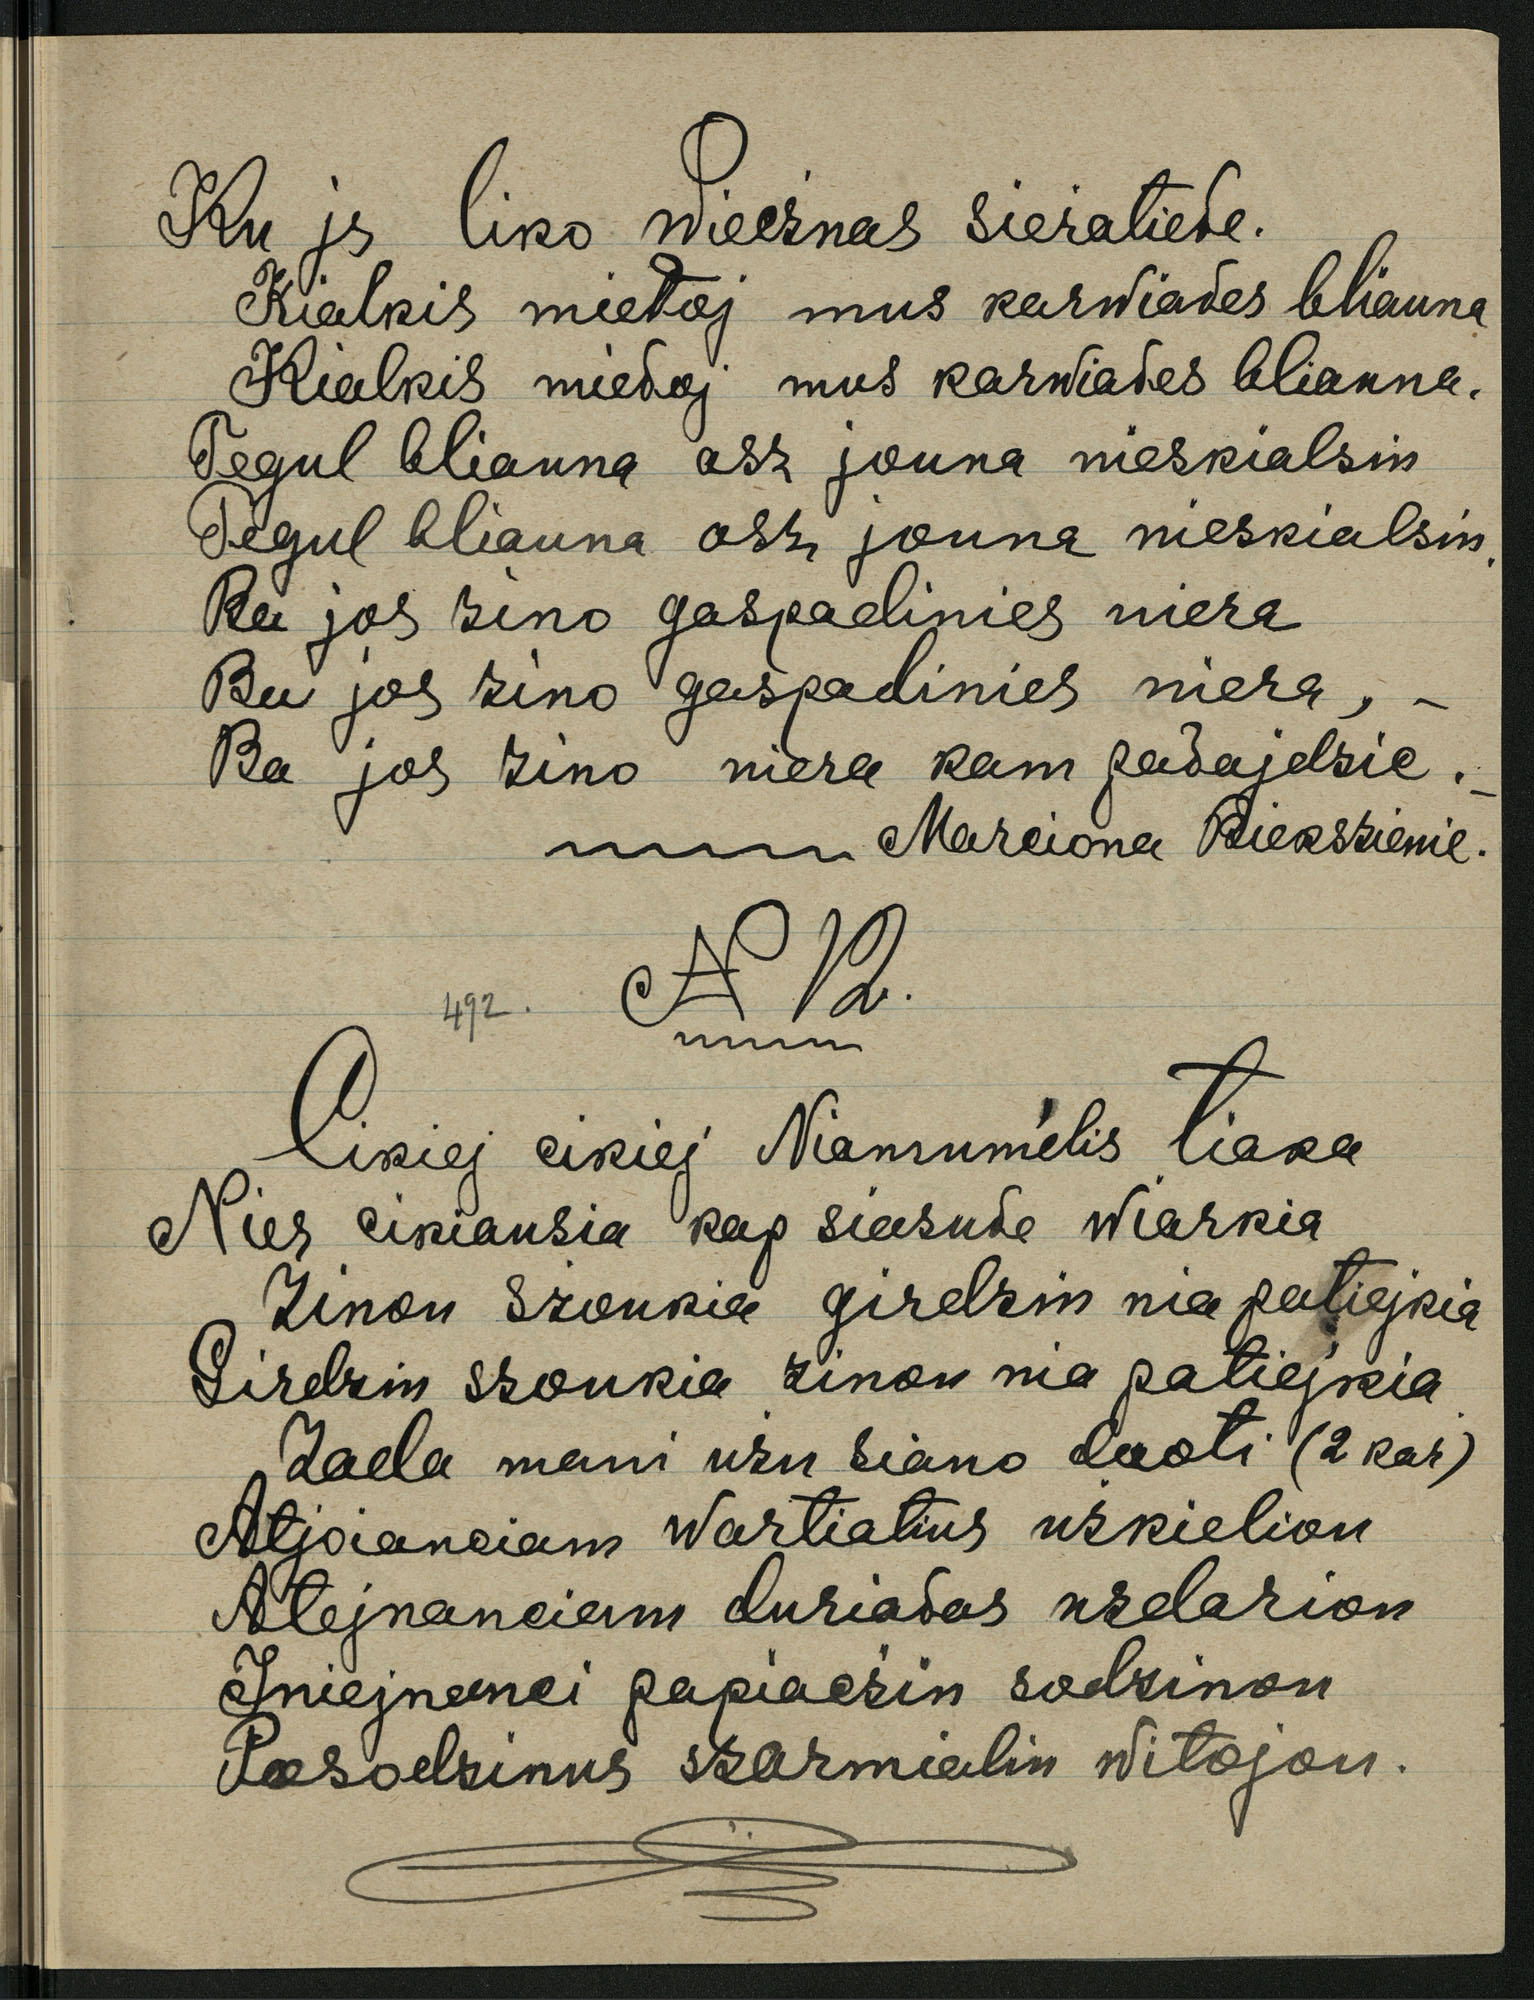 Ku js liko wiecznas sieratiełe.
Kialkis miełoj mus karwiałes bliauna
Kialkis miełoj mus karwiałes bliauna.
Tegul bliauna asz jouna nieskialsin
Tegul bliauna asz jouna nieskialsin.
Ba jos zino gaspadinies niera
Ba jos zino gaspadinies niera, –
Ba jos zino niera kam pałajdzie. –
Marciona Biekszienie.
492. N 12.
Cikiej cikiej Niamumelis tiaka
Nies cikiausia kap siasułe wiarkia
Zinou szoukia girdzin nia patiejkia
Girdzin szoukia zinou nia patiejkia
Zada mani użu siano duoti (2 kar)
Atjoianciam wartiatius uzkieliou
Atejnanciam duriałas uzdariou
Iniejnanci papiaczin sodzinou
Pasodzinus szarmialin witojou.